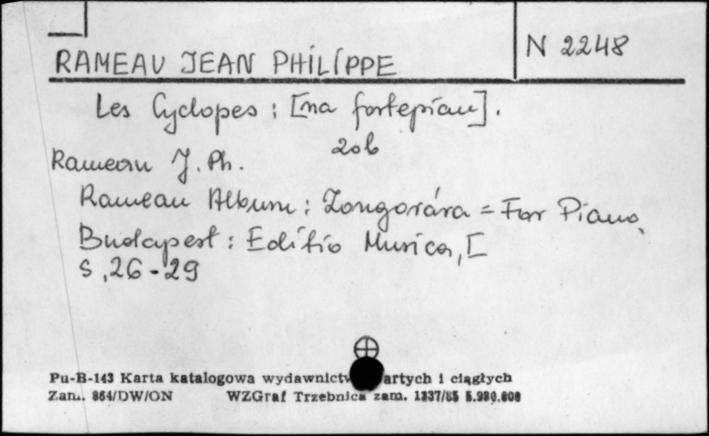 N 2248
RAMEAU JEAN PHILIPPE
Les Cyclopes : [na fortepian].
zob
Rameau J. Ph.
Rameau Album : Zongorára = For Piano,
Budapest : Editio Musica, [
s. 26-29
Pu-B-143 Karta katalogowa wydawnictw artych i ciągłych
Zam. 864/DW/ON WZGraf Trzebnica zam. 1337/85